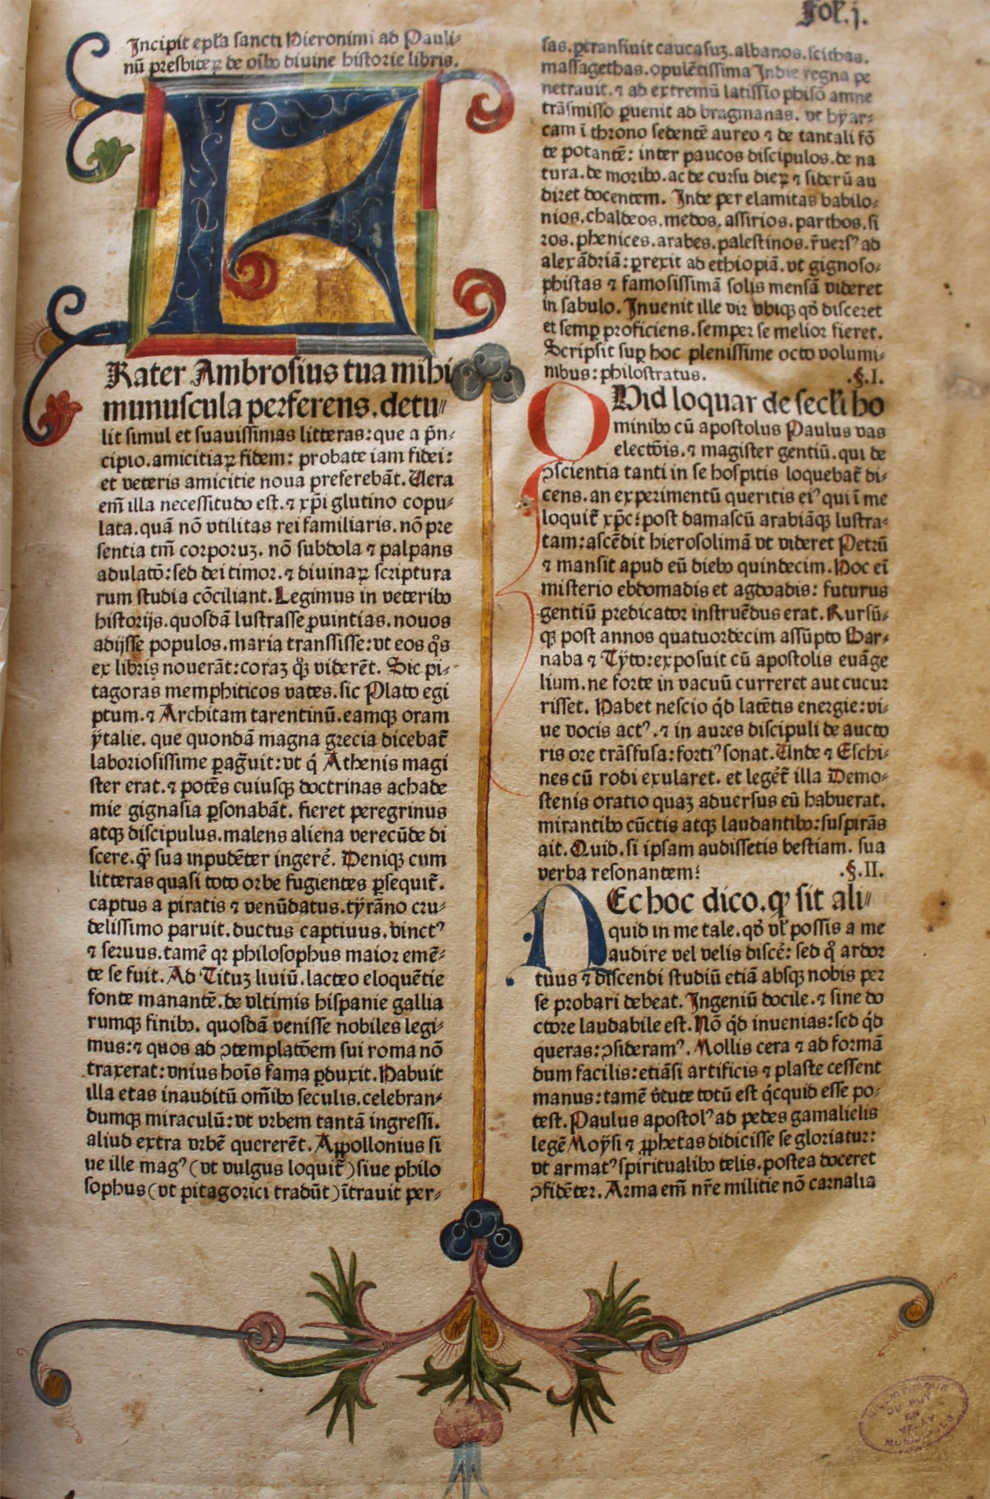 Fol̃. j.
Incipit ep̃la sancti Hieronimi ad Pauli⸗
nũ presbiteꝝ de oĩbꝰ diuine historie libris.
F
Rater Ambrosius tua mihi
munuscula perferens. detu⸗
lit simul et suauissimas litteras: que a p̃n⸗
cipio. amicitiaꝝ fidem: probate iam fidei:
et veteris amicitie noua preferebãt. Uera
em̃ illa necessitudo est. ⁊ xp̃i glutino copu⸗
lata. quã nõ vtilitas rei familiaris. nõ pre
sentia tm̃ corporuꝫ. nõ subdola ⁊ palpans
adulatõ: sed dei timor. ⁊ diuinaꝝ scriptura
rum studia cõciliant. Legimus in veteribꝰ
historijs. quosdã lustrasse ꝓuintias. nouos
adijsse populos. maria transisse: vt eos q̃s
ex libris nouerãt: coraꝫ qꝫ viderẽt. Sic pi⸗
tagoras memphiticos vates. sic Plato egi
ptum. ⁊ Architam tarentinũ. eamqꝫ oram
ẏtalie. que quondã magna grecia dicebat̃
laboriosissime ꝑag̃uit: vt q̃ Athenis magi
ster erat. ⁊ potẽs cuiusqꝫ doctrinas achade
mie gignasia ꝑsonabãt. fieret peregrinus
atqꝫ discipulus. malens aliena verecũde di
scere. q̃ꝫ sua inpudẽter ingerẽ. Deniqꝫ cum
litteras quasi toto orbe fugientes ꝑsequit̃.
captus a piratis ⁊ venũdatus. tẏrãno cru⸗
delissimo paruit. ductus captiuus. vinctꝰ
⁊ seruus. tamẽ qꝛ philosophus maior emẽ⸗
te se fuit. Ad Tituꝫ liuiũ. lacteo eloquẽtie
fonte manantẽ. de vltimis hispanie gallia
rumqꝫ finibꝰ. quosdã venisse nobiles legi⸗
mus: ⁊ quos ad ↄtemplatõem sui roma nõ
traxerat: vnius hoĩs fama ꝑduxit. Habuit
illa etas inauditũ om̃ibꝰ seculis. celebran⸗
dumqꝫ miraculũ: vt vrbem tantã ingressi.
aliud extra vrbẽ quererẽt. Appollonius si
ue ille magꝰ (vt vulgus loquit̃) siue philo
sophus (vt pitagorici tradũt) ĩtrauit per⸗
sas. ꝑtransiuit caucasuꝫ. albanos. scithas.
massagethas. opulẽtissima Indie regna pe
netrauit. ⁊ ad extremũ latissiõ phisõ amne
trãsmisso ꝑuenit ad bragmanas. vt hẏar⸗
cam ĩ throno sedentẽ aureo ⁊ de tantali fõ
te potantẽ: inter paucos discipulos. de na
tura. de moribꝰ. ac de cursu dieꝝ ⁊ siderũ au
diret docentem. Inde per elamitas babilo⸗
nios. chaldeos. medos. assirios. parthos. si
ros. phenices. arabes. palestinos. r̃uersꝰ ad
alexãdriã: ꝑrexit ad ethiopiã. vt gignoso⸗
phistas ⁊ famosissimã solis mensã videret
in sabulo. Inuenit ille vir vbiqꝫ qd̃ disceret
et semꝑ proficiens. semper se melior fieret.
Scripsit suꝑ hoc plenissime octo volumi⸗
nibus: philostratus. .§.I.
QUid loquar de secl̃i ho
minibꝰ cũ apostolus Paulus vas
electõis. ⁊ magister gentiũ. qui de
ↄscientia tanti in se hospitis loquebat̃ di⸗
cens. an experimentũ queritis eiꝰ qui ĩ me
loquit̃ xp̃c: post damascũ arabiãqꝫ lustra⸗
tam: ascẽdit hierosolimã vt videret Petrũ
⁊ mansit apud eũ diebꝰ quindecim. Hoc ei̇̃
misterio ebdomadis et agdoadis: futurus
gentiũ predicator instruẽdus erat. Rursũ⸗
qꝫ post annos quatuordecim assũpto Bar⸗
naba ⁊ Tẏto: exposuit cũ apostolis euãge
lium. ne forte in vacuũ curreret aut cucur
risset. Habet nescio q̃d latẽtis energie: vi⸗
ue vocis actꝰ. ⁊ in aures discipuli de aucto
ris ore trãsfusa: fortiꝰ sonat. Unde ⁊ Eschi⸗
nes cũ rodi exularet. et legẽt̃ illa Demo⸗
stenis oratio quaꝫ aduersus eũ habuerat.
mirantibꝰ cũctis atqꝫ laudantibꝰ: suspirãs
ait. Quid. si ipsam audissetis bestiam. sua
verba resonantem: .§.II.
NEc hoc dico. qꝙ sit ali⸗
quid in me tale. qd̃ vl̃ possis a me
audire vel velis discẽ: sed q̃ ardor
tuus ⁊ discendi studiũ etiã absqꝫ nobis per
se probari debeat. Ingeniũ docile. ⁊ sine do
ctore laudabile est. Nõ q̃d inuenias: sed q̃d
queras: ↄsideramꝰ. Mollis cera ⁊ ad formã
dum facilis: etiãsi artificis ⁊ plaste cessent
manus: tamẽ v̇̃tute totũ est q̃cquid esse po⸗
test. Paulus apostolꝰ ad pedes gamalielis
legẽ Moẏsi ⁊ ꝓphetas didicisse se gloriatur:
vt armatꝰ spiritualibꝰ telis. postea doceret
ↄfidẽter. Arma em̃ nr̃e militie nõ carnalia
DU PUY
EN
VELAY